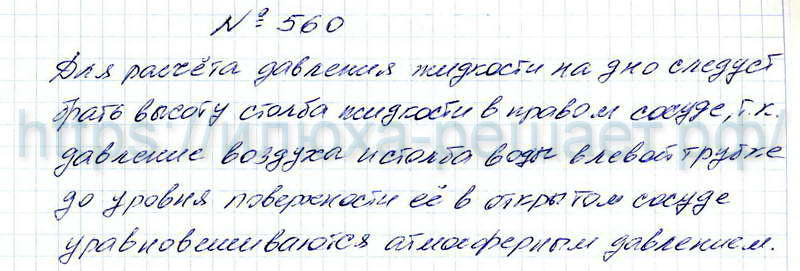 № 560
Для расчёта давления жидкости на дно следует
брать высоту столба жидкости в правом сосуде, т.к.
https://илюха-решает.рф/
давление воздуха и столба воды в левой трубке
до уровня поверхности её в открытом сосуде
уравновешиваются атмосферным давлением.